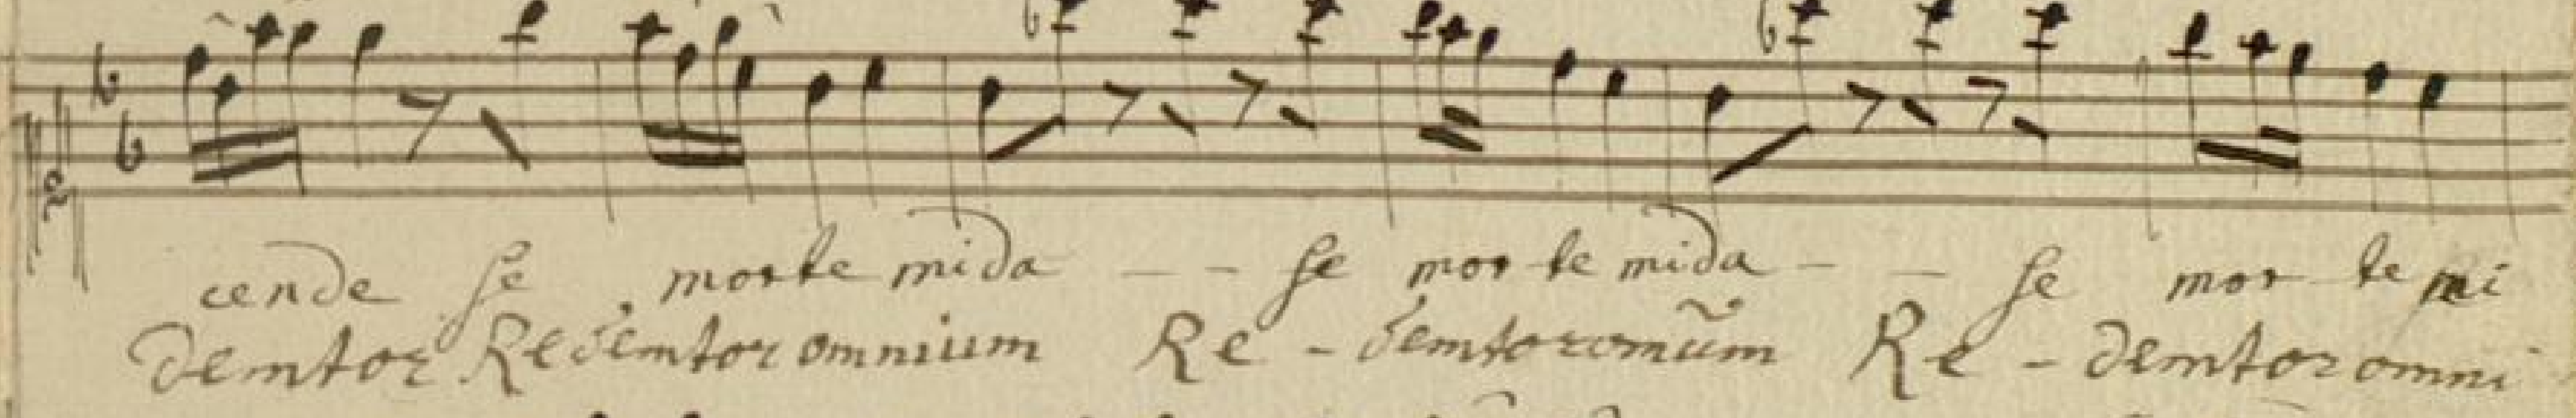 cende se morte mida - - se mor te mida - - se mor te mi
demtor Redemtor omnium Re - demtor omnium Re - demtor omni